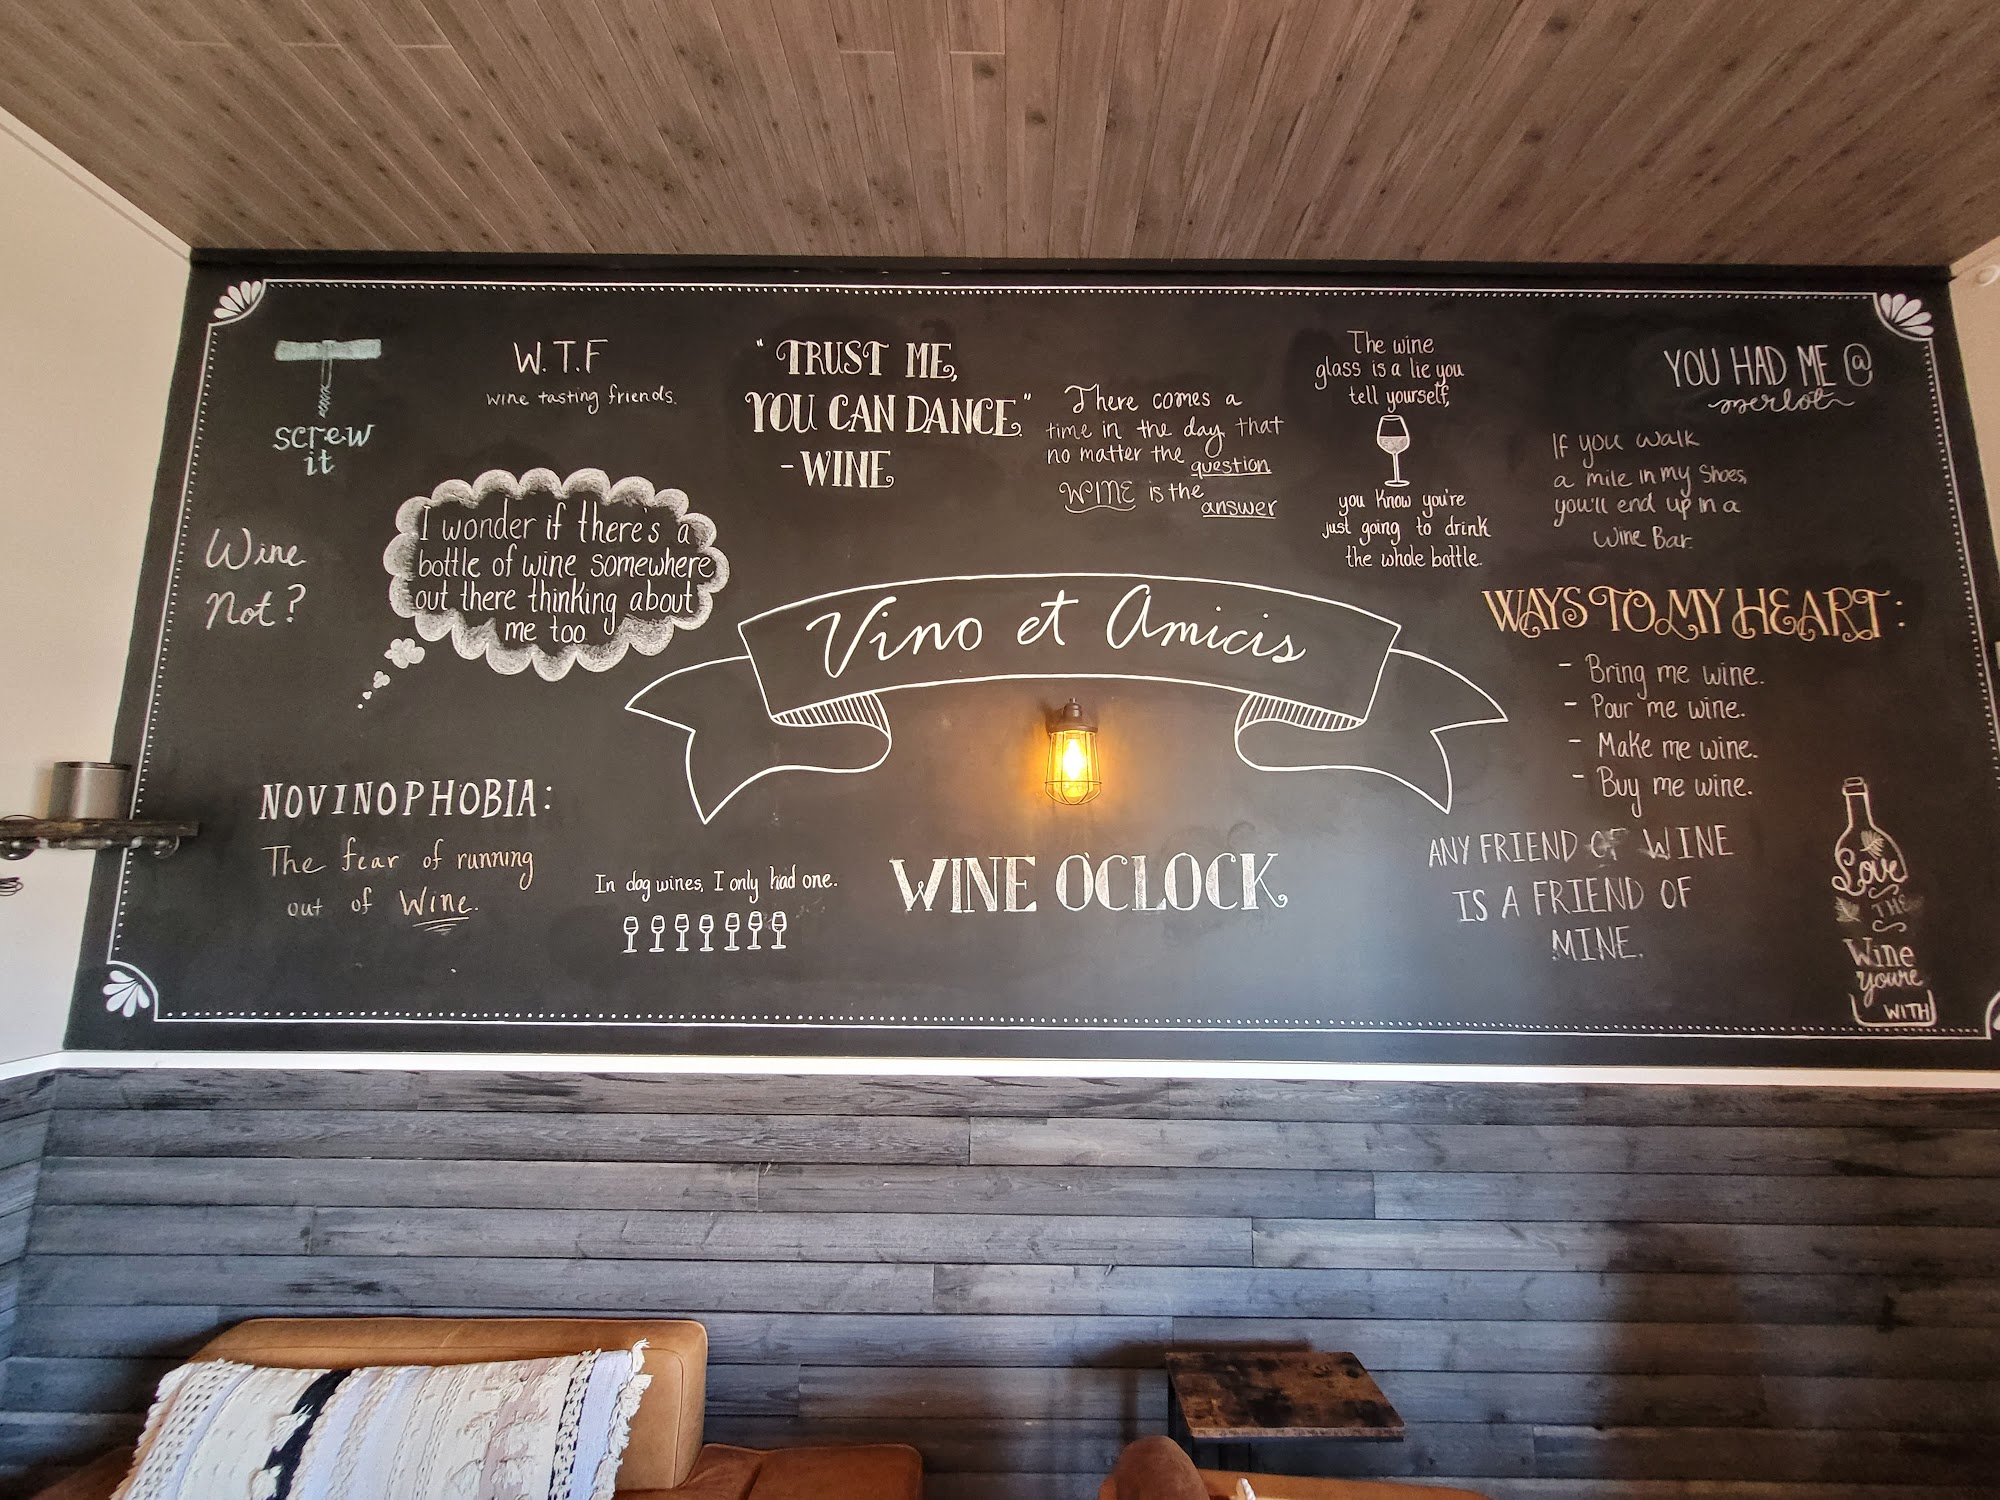 screw
it
W.T.F
wine tasting friends.
"TRUST ME,
YOU CAN DANCE."
- WINE
There comes a
time in the day that
no matter the question
WINE is the
answer
The wine
glass is a lie you
tell yourself,
you know you're
just going to drink
the whole bottle.
YOU HAD ME @
merlot
If you walk
a mile in my shoes,
you'll end up in a
Wine Bar.
Wine
Not?
I wonder if there's a
bottle of wine somewhere
out there thinking about
me too.
Vino et Amicis
WAYS TO MY HEART:
- Bring me wine.
- Pour me wine.
- Make me wine.
- Buy me wine.
NOVINOPHOBIA:
The fear of running
out of Wine.
In dog wines, I only had one.
WINE O'CLOCK
ANY FRIEND OF WINE
IS A FRIEND OF
MINE.
Love
THE
Wine
you're
WITH